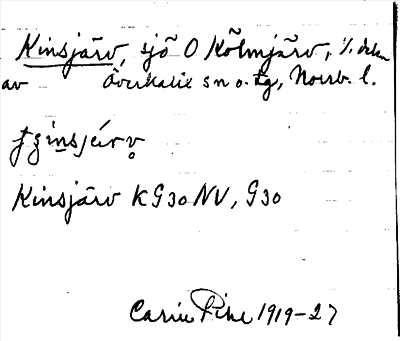 Kinsjärv, sjö O Kölmjärv, i
av Överkalix sn o. tg, Norrb. l.
Kinsjärv KG30NV, G30
Carin Pihl 1919-27